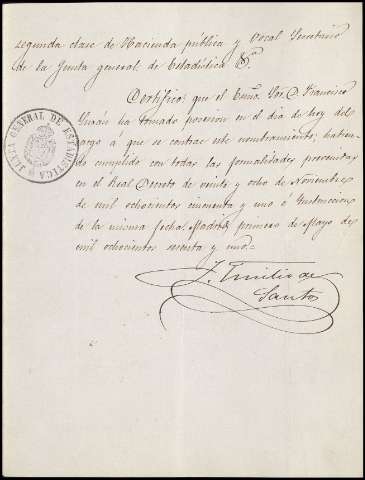 segunda clase de Hacienda pública y Vocal Secretario
de la Junta general de Estadística &ª.
Certifico: que el Excmo. Sor. D. Francisco
ha tomado posesion en el dia de hoy del
cargo á que se contrae este nombramiento, habien-
do cumplido con todas las formalidades prevenidas
en el Real Decreto de veinte y ocho de Noviembre
de mil ochocientos cincuenta y uno é Instruccion
de la misma fecha. Madrid primero de Mayo de
mil ochocientos sesenta y uno.
J. Emilio de
Santos
JUNTA GENERAL DE ESTADISTICA